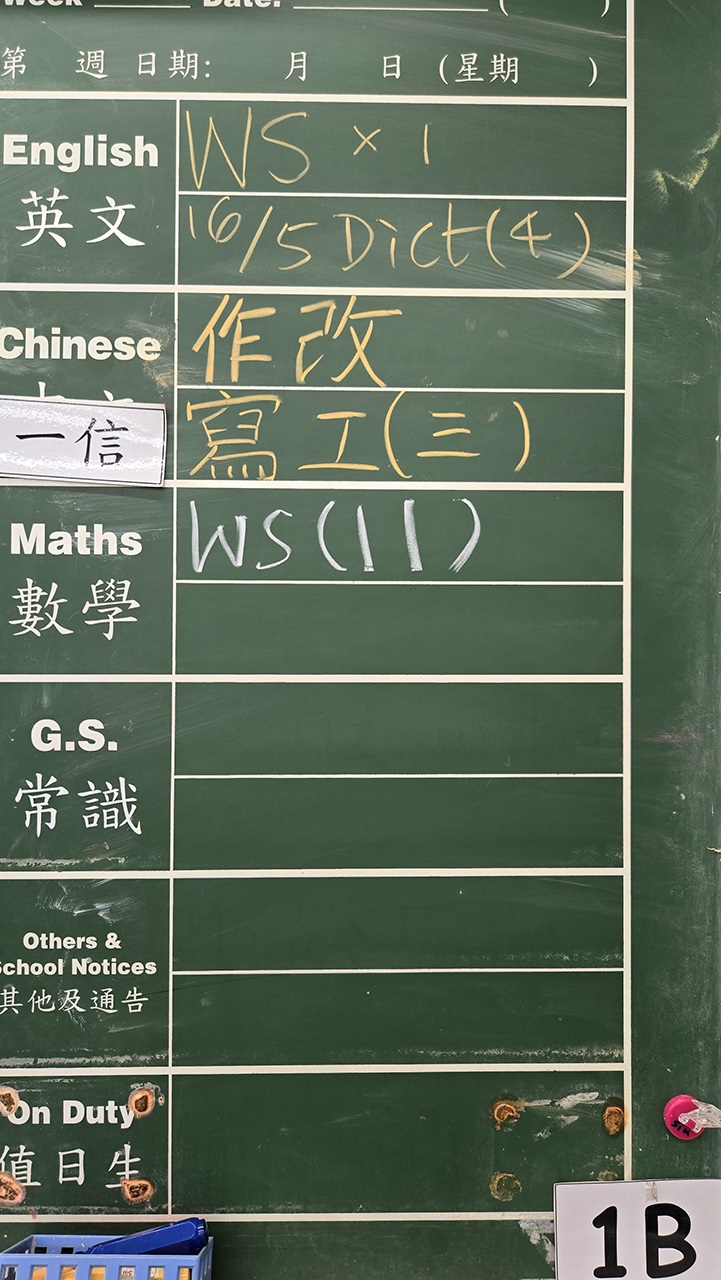 Week ____ Date: ________ ( )
第 週 日期: 月 日 (星期 )
English
英文
WS × 1
16/5 Dict(4)
Chinese
作改
一信
寫工(三)
Maths
數學
WS(11)
G.S.
常識
Others &
School Notices
其他及通告
On Duty
值日生
1B